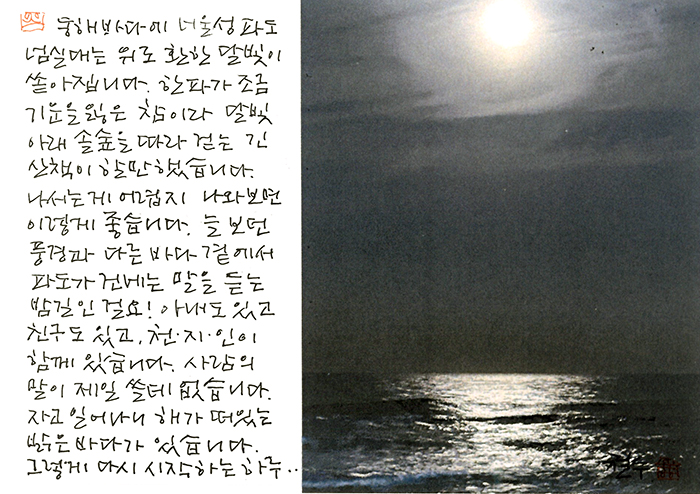 동해바다에 너울성 파도
넘실대는 위로 환한 달빛이
쏟아집니다. 한파가 조금
기운을 잃은 참이라 달빛
아래 솔숲을 따라 걷는 긴
산책이 할만 했습니다.
나서는게 어렵지 나와보면
이렇게 좋습니다. 늘 보던
풍경과 다른 바다 곁에서
파도가 건네는 말을 듣는
밤길인 걸요! 아내도 있고
친구도 있고, 천·지·인이
함께 있습니다. 사람의
말이 제일 쓸데 없습니다.
자고 일어나니 해가 떠있는
밝은 바다가 있습니다.
그렇게 다시 시작하는 하루..
철수